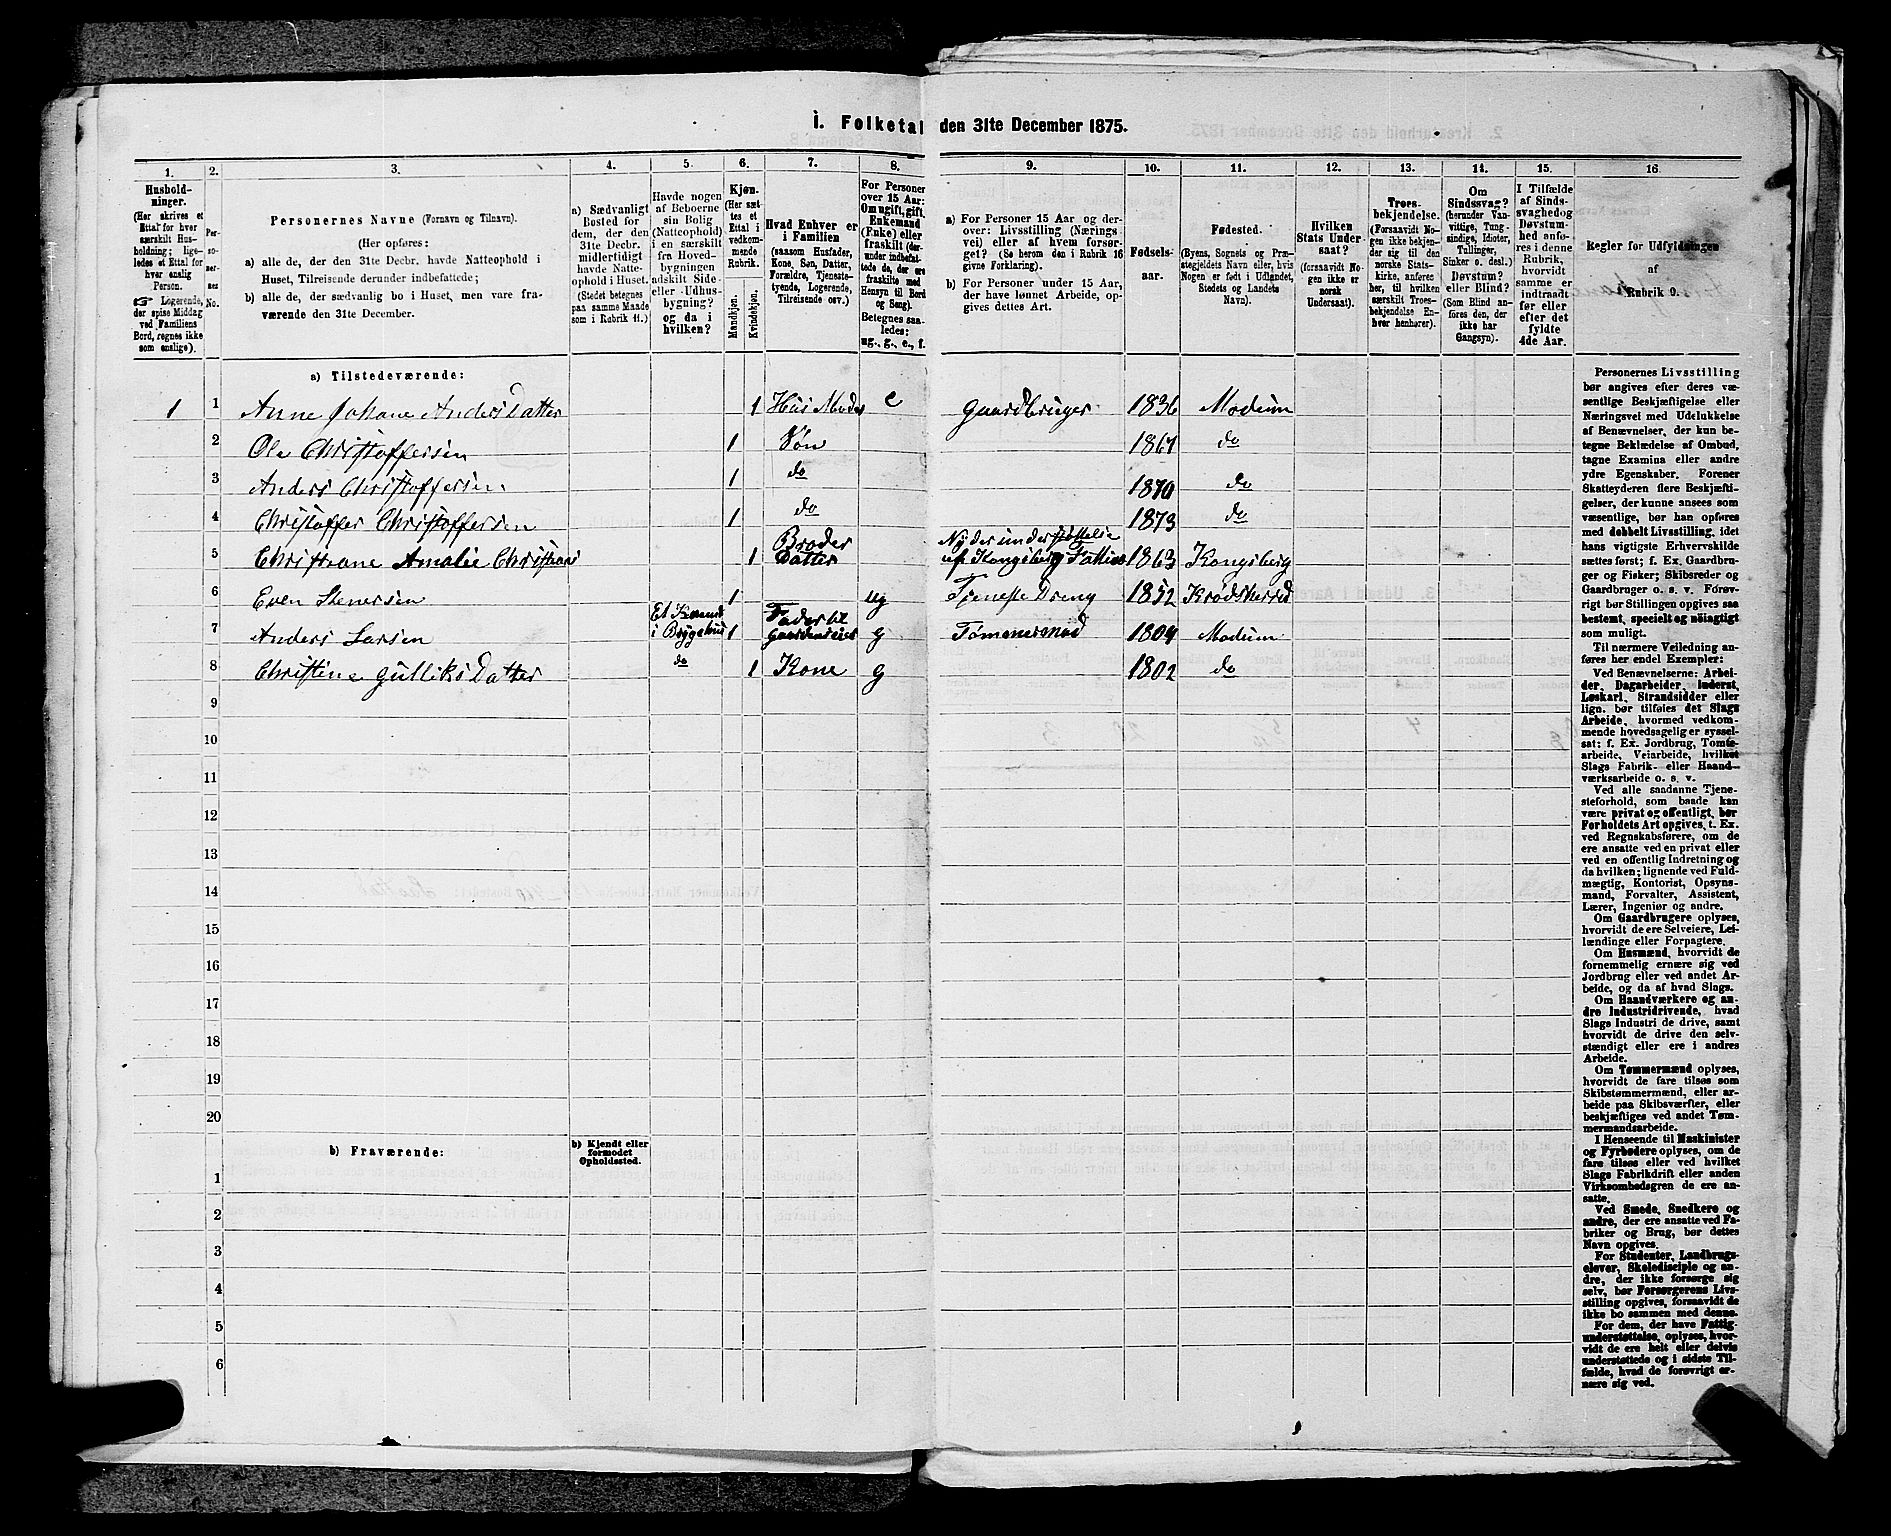 1. Folketal den 31te December 1875.
1. 2. 3. 4. 5. 6. 7. 8. 9. 10. 11. 12. 13. 14. 15. 16.
Husholdninger.
(Her skrives et
Ettal for hver
særskilt Husholdning;
ligeledes et Ettal for
hver enslig
Person.
Logerende,
der spise Middag
ved Familiens
Bord, regnes ikke
som enslige).
Personernes No.
Personernes Navne (Fornavn og Tilnavn).
(Her opføres:
a) alle de, der den 31te Decbr. havde Natteophold i
Huset, Tilreisende derunder indbefattede;
b) alle de, der sædvanlig bo i Huset, men vare fraværende
den 31te December.
a) Sædvanligt
Bosted for
dem, der den
31te Decbr.
midlertidigt
havde Natteophold
i Huset.
(Stedet betegnes
paa samme Maade
som i Rubrik 11.)
Havde nogen
af Beboerne
sin Bolig
(Natteophold)
i en særskilt
fra Hovedbygningen
adskilt Side- eller
Udhusbygning?
og da i
hvilken?
Kjøn.
(Her sættes et
Ettal i
vedkommende
Rubrik.
Mandkjøn.
Kvindekjøn.
Hvad Enhver er
i Familien
(saasom Husfader,
Kone, Søn, Datter,
Forældre, Tjenestetyende,
Logerende,
Tilreisende osv.)
For Personer
over 15 Aar:
Om ugift, gift,
Enkemand
(Enke) eller
fraskilt (derunder
indbefattede de, der ere
fraskilte med
Hensyn til Bord
og Seng).
Betegnes saaledes:
ug., g., e., f.
a) For Personer 15 Aar og derover:
Livsstilling (Næringsvei)
eller af hvem forsørget?
(Se herom den i Rubrik 16
givne Forklaring).
b) For Personer under 15 Aar,
der have lønnet Arbeide, opgives
dettes Art.
Fødselsaar.
Fødested.
(Byens, Sognets og Præstegjeldets
Navn eller, hvis
Nogen er født i Udlandet,
Stedets og Landets
Navn).
Hvilken
Stats Undersaat?
(forsaavidt Nogen
ikke er
norsk
Undersaat).
Troesbekjendelse.
(Forsaavidt Nogen
ikke bekjender
sig til den
norske Statskirke,
anføres
her, til hvilken
særskilt Troesbekjendelse
Enhver henhører).
Om
Sindssvag?
(herunder Vanvittige,
Tungsindige, Idioter,
Tullinger,
Sinker o. desl.)
Døvstum?
eller Blind?
(Som Blind anføres
den, der
ikke har
Gangsyn).
I Tilfælde
af Sindssvaghed
og
Døvstumhed
anføres
i denne
Rubrik,
hvorvidt
samme er
indtraadt
før eller
efter det
fyldte
4de Aar.
Regler for Udfyldningen
af
Rubrik 9.
a) Tilstedeværende:
1 1 Anne Johane AndersDatter 1 Hus Moder e Gaardbruger 1836 Modum
2 Ole Christoffersen 1 Søn 1867 do
3 Anders Christoffersen 1 do 1870 do
4 Christoffer Christoffersen 1 do 1873 do
5 Christiane Amalie 1 Broder Datter 1863 Kongsberg
6 Even Stenersen 1 ug Tjeneste Dreng 1852 Krødsherred
7 Anders Larsen i Bryggehus 1 Fader til g Tømmermand 1804 Modum
8 Christine GulliksDatter do 1 Kone g 1802 do
9
10
11
12
13
14
15
16
17
18
19
20
b) Fraværende:
b) Kjendt eller
formodet
Opholdssted.
1
2
3
4
5
6
Personernes Livsstilling
bør angives efter deres væsentlige
Beskjæftigelse eller
Næringsvei med Udelukkelse
af Benævnelser, der kun betegne
Beklædelse af Ombud,
tagne Examina eller andre
ydre Egenskaber. Forener
Skatteyderen flere Beskjæftigelser,
der kunne ansees som
væsentlige, bør han opføres
med dobbelt Livsstilling, idet
hans vigtigste Erhvervskilde
sættes først; f. Ex. Gaardbruger
og Fisker; Skibsreder og
Gaardbruger o. s. v. Forøvrigt
bør Stillingen opgives saa
bestemt, specielt og nøiagtigt
som muligt.
Til nærmere Veiledning anføres
her endel Exempler:
Ved Benævnelserne: Arbeider,
Dagarbeider, Inderst,
Løskarl, Strandsidder eller
lign. bør tilføies det Slags
Arbeide, hvormed vedkommende
hovedsagelig er sysselsat;
f. Ex. Jordbrug, Tomtearbeide,
Veiarbeide, hvilket
Slags Fabrik- eller Haandværksarbeide
o. s. v.
Ved alle saadanne Tjenesteforhold,
som baade kan
være privat og offentligt, bør
Forholdets Art opgives, t. Ex.
ved Regnskabsførere, om de
ere ansatte ved en privat eller
ved en offentlig Indretning og
da hvilken; lignende ved Fuldmægtig,
Kontorist, Opsynsmand,
Forvalter, Assistent,
Lærer, Ingeniør og andre.
Om Gaardbrugere oplyses,
hvorvidt de ere Selveiere, Leilændinge
eller Forpagtere.
Om Husmænd, hvorvidt de
fornemmelig ernære sig ved
Jordbrug eller ved andet Arbeide,
og da af hvad Slags.
Om Haandværkere og andre
Industridrivende, hvad
Slags Industri de drive, samt
hvorvidt de drive den selvstændigt
eller ere i andres
Arbeide.
Om Tømmermænd oplyses,
hvorvidt de fare tilsøs som
Skibstømmermænd, eller arbeide
paa Skibsværfter, eller
beskjæftiges ved andet Tømmermandsarbeide.
I Henseende til Maskinister
og Fyrbødere oplyses, om de
fare tilsøs eller ved hvilket
Slags Fabrikdrift eller anden
Virksomhedsgren de ere ansatte.
Ved Smede, Snedkere og
andre, der ere ansatte ved Fabriker
og Brug, bør dettes
Navn opgives.
For Studenter, Landbrugselever,
Skoledisciple og andre,
der ikke forsørge sig
selv, bør Forsørgerens Livsstilling
opgives, forsaavidt de
ikke bo sammen med denne.
For dem, der have Fattigunderstøttelse,
oplyses, hvorvidt
de ere helt eller delvis
understøttede og i sidste Tilfælde,
hvad de forøvrigt ernære
sig ved.